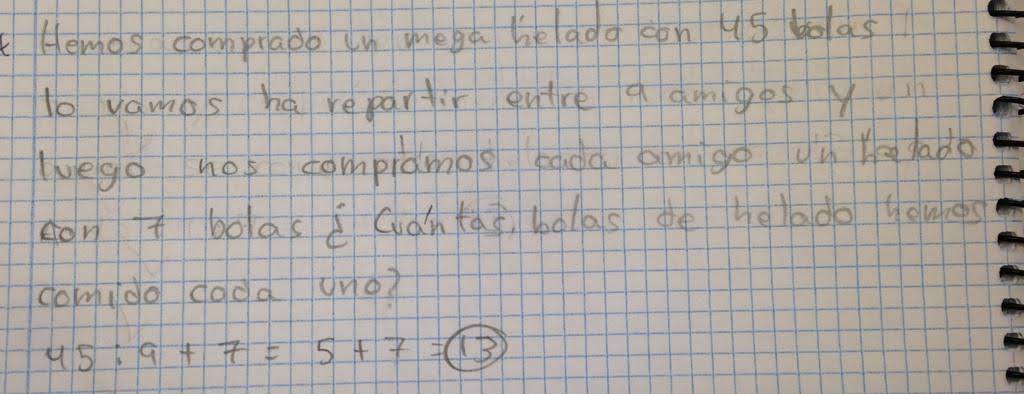 Hemos comprado un mega helado con 45 bolas
lo vamos ha repartir entre 9 amigos y
luego nos compramos cada amigo un helado
con 7 bolas ¿ Cuántas bolas de helado hemos
comido cada uno?
45 : 9 + 7 = 5 + 7 = 13